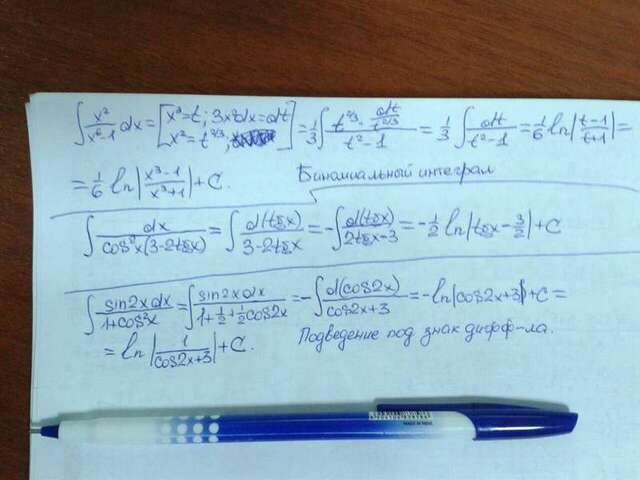 ∫ x²/(x⁶-1) dx = [x³=t; 3x²dx=dt; x²=t^(2/3);] = 1/3 ∫ (t^(2/3) · dt/t^(2/3))/(t²-1) = 1/3 ∫ dt/(t²-1) = 1/6 ln|(t-1)/(t+1)| =
= 1/6 ln|(x³-1)/(x³+1)| + C. Биномиальный интеграл
∫ dx/(cos²x(3-2tgx)) = ∫ d(tgx)/(3-2tgx) = -∫ d(tgx)/(2tgx-3) = -1/2 ln|tgx - 3/2| + C
∫ sin2xdx/(1+cos²x) = ∫ sin2xdx/(1+1/2+1/2cos2x) = -∫ d(cos2x)/(cos2x+3) = -ln|cos2x+3| + C =
= ln|1/(cos2x+3)| + C. Подведение под знак дифф-ла.